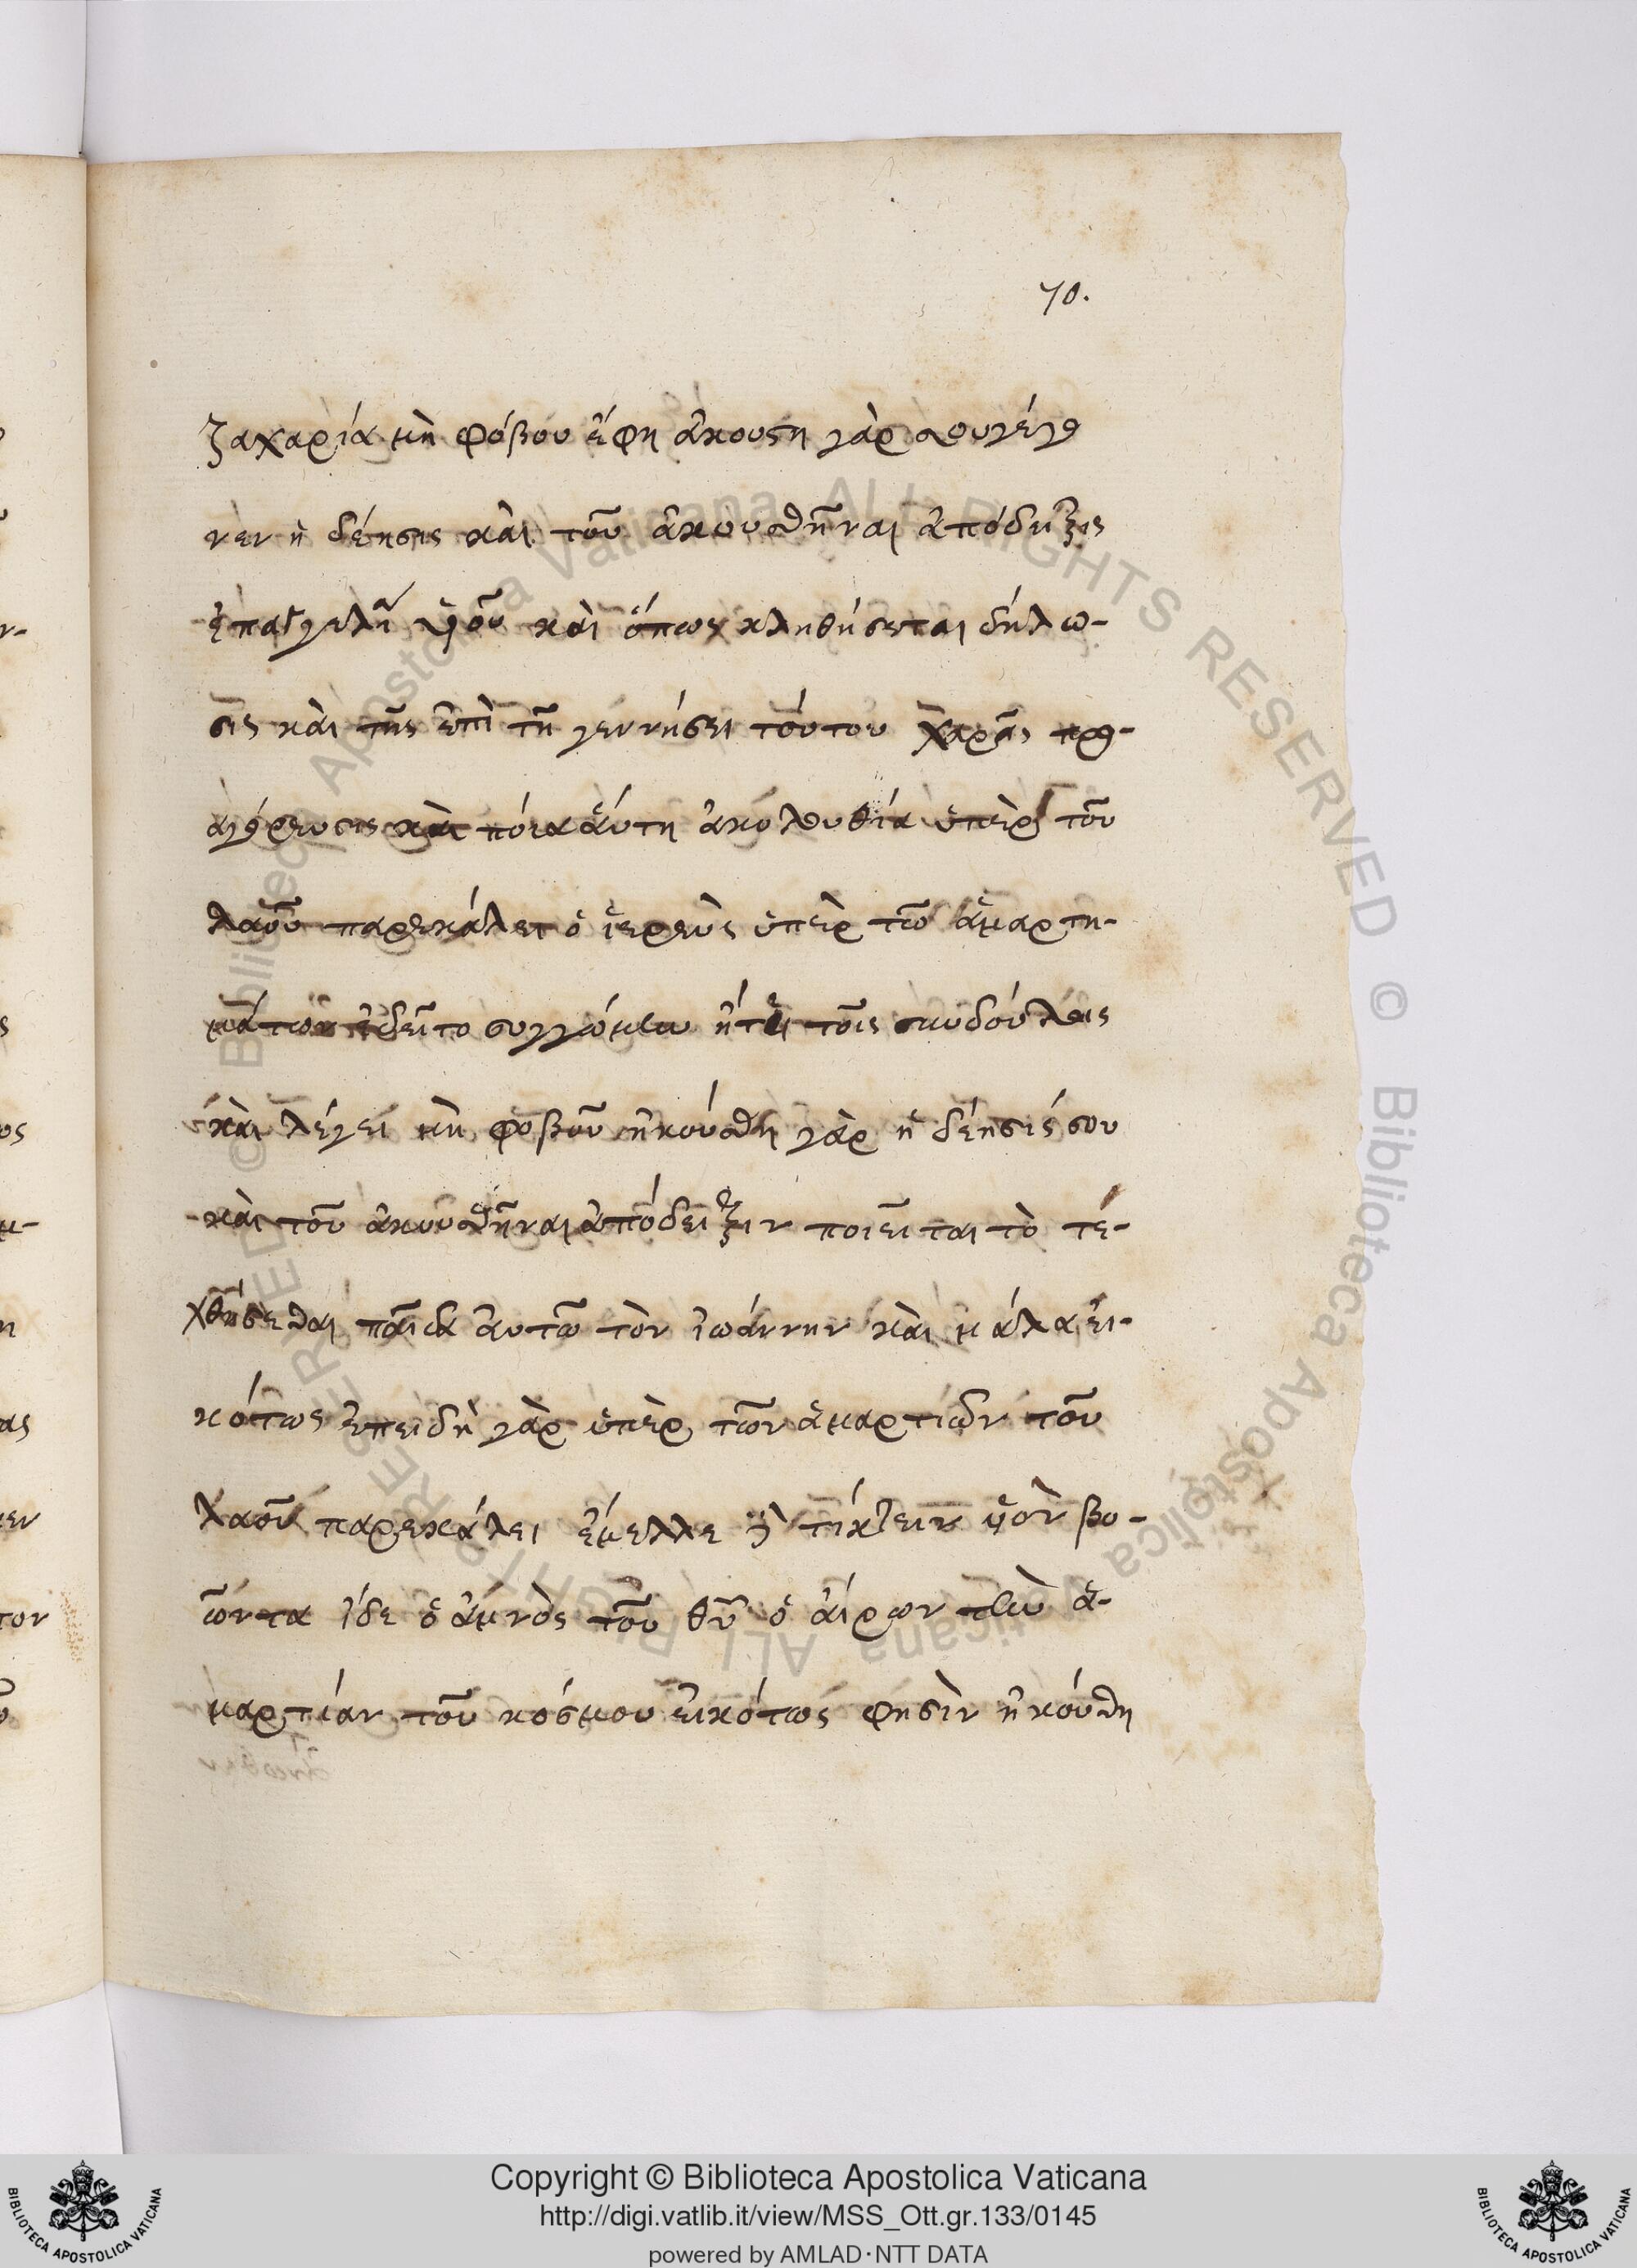 70.
ζαχαρία μὴ φόβου ἔφη ἀκουστὴ γὰρ σου γέγο
νεν ἡ δέησις καὶ τοῦ ἀκουσθῆναι ἀπόδειξις
ἐπαγγελῖα υἱοῦ καὶ ὅπως κληθήσεται δήλω-
σις καὶ τῆς ἐπὶ τῆ γεννήσει τούτου χαρᾶς προ-
αγόρευσις καὶ ποία ἅυτη ἀκολουθία ὑπὲρ τοῦ
λαοῦ παρεκάλει ὁ ἱερεὺς ὑπὲρ τῶν ἁμαρτη-
μάτων ἐδεῖτο συγγνώμην ἤτει τοῖς συνδούλοις
καὶ λέγει μὴ φοβοῦ ἠκούσθη γὰρ ἡ δέησίς σου
καὶ τοῦ ἀκουσθῆναι ἀπόδειξιν ποιεῖται τὸ τε-
χθήσεσθαι παῖδα ἀυτῶ τὸν ἰωάννην καὶ μάλα εἰ-
κότως ἐπειδὴ γὰρ ὑπὲρ τῶν ἁμαρτιῶν τοῦ
λαοῦ παρεκάλει ἔμελλε δὲ τίκτειν υἱὸν βο-
ῶντα ἴδε ὁ ἀμνὸς τοῦ θῦ ὁ ἀίρων τὴν ἁ-
μαρτίαν τοῦ κόσμου εἰκότως φησὶν ἠκούσθη
Copyright © Biblioteca Apostolica Vaticana
http://digi.vatlib.it/view/MSS_Ott.gr.133/0145
powered by AMLAD·NTT DATA
BIBLIOTECA APOSTOLICA VATICANA
BIBLIOTECA APOSTOLICA VATICANA
© Biblioteca Apostolica Vaticana ALL RIGHTS RESERVED © Biblioteca Apostolica Vaticana ALL RIGHTS RESERVED